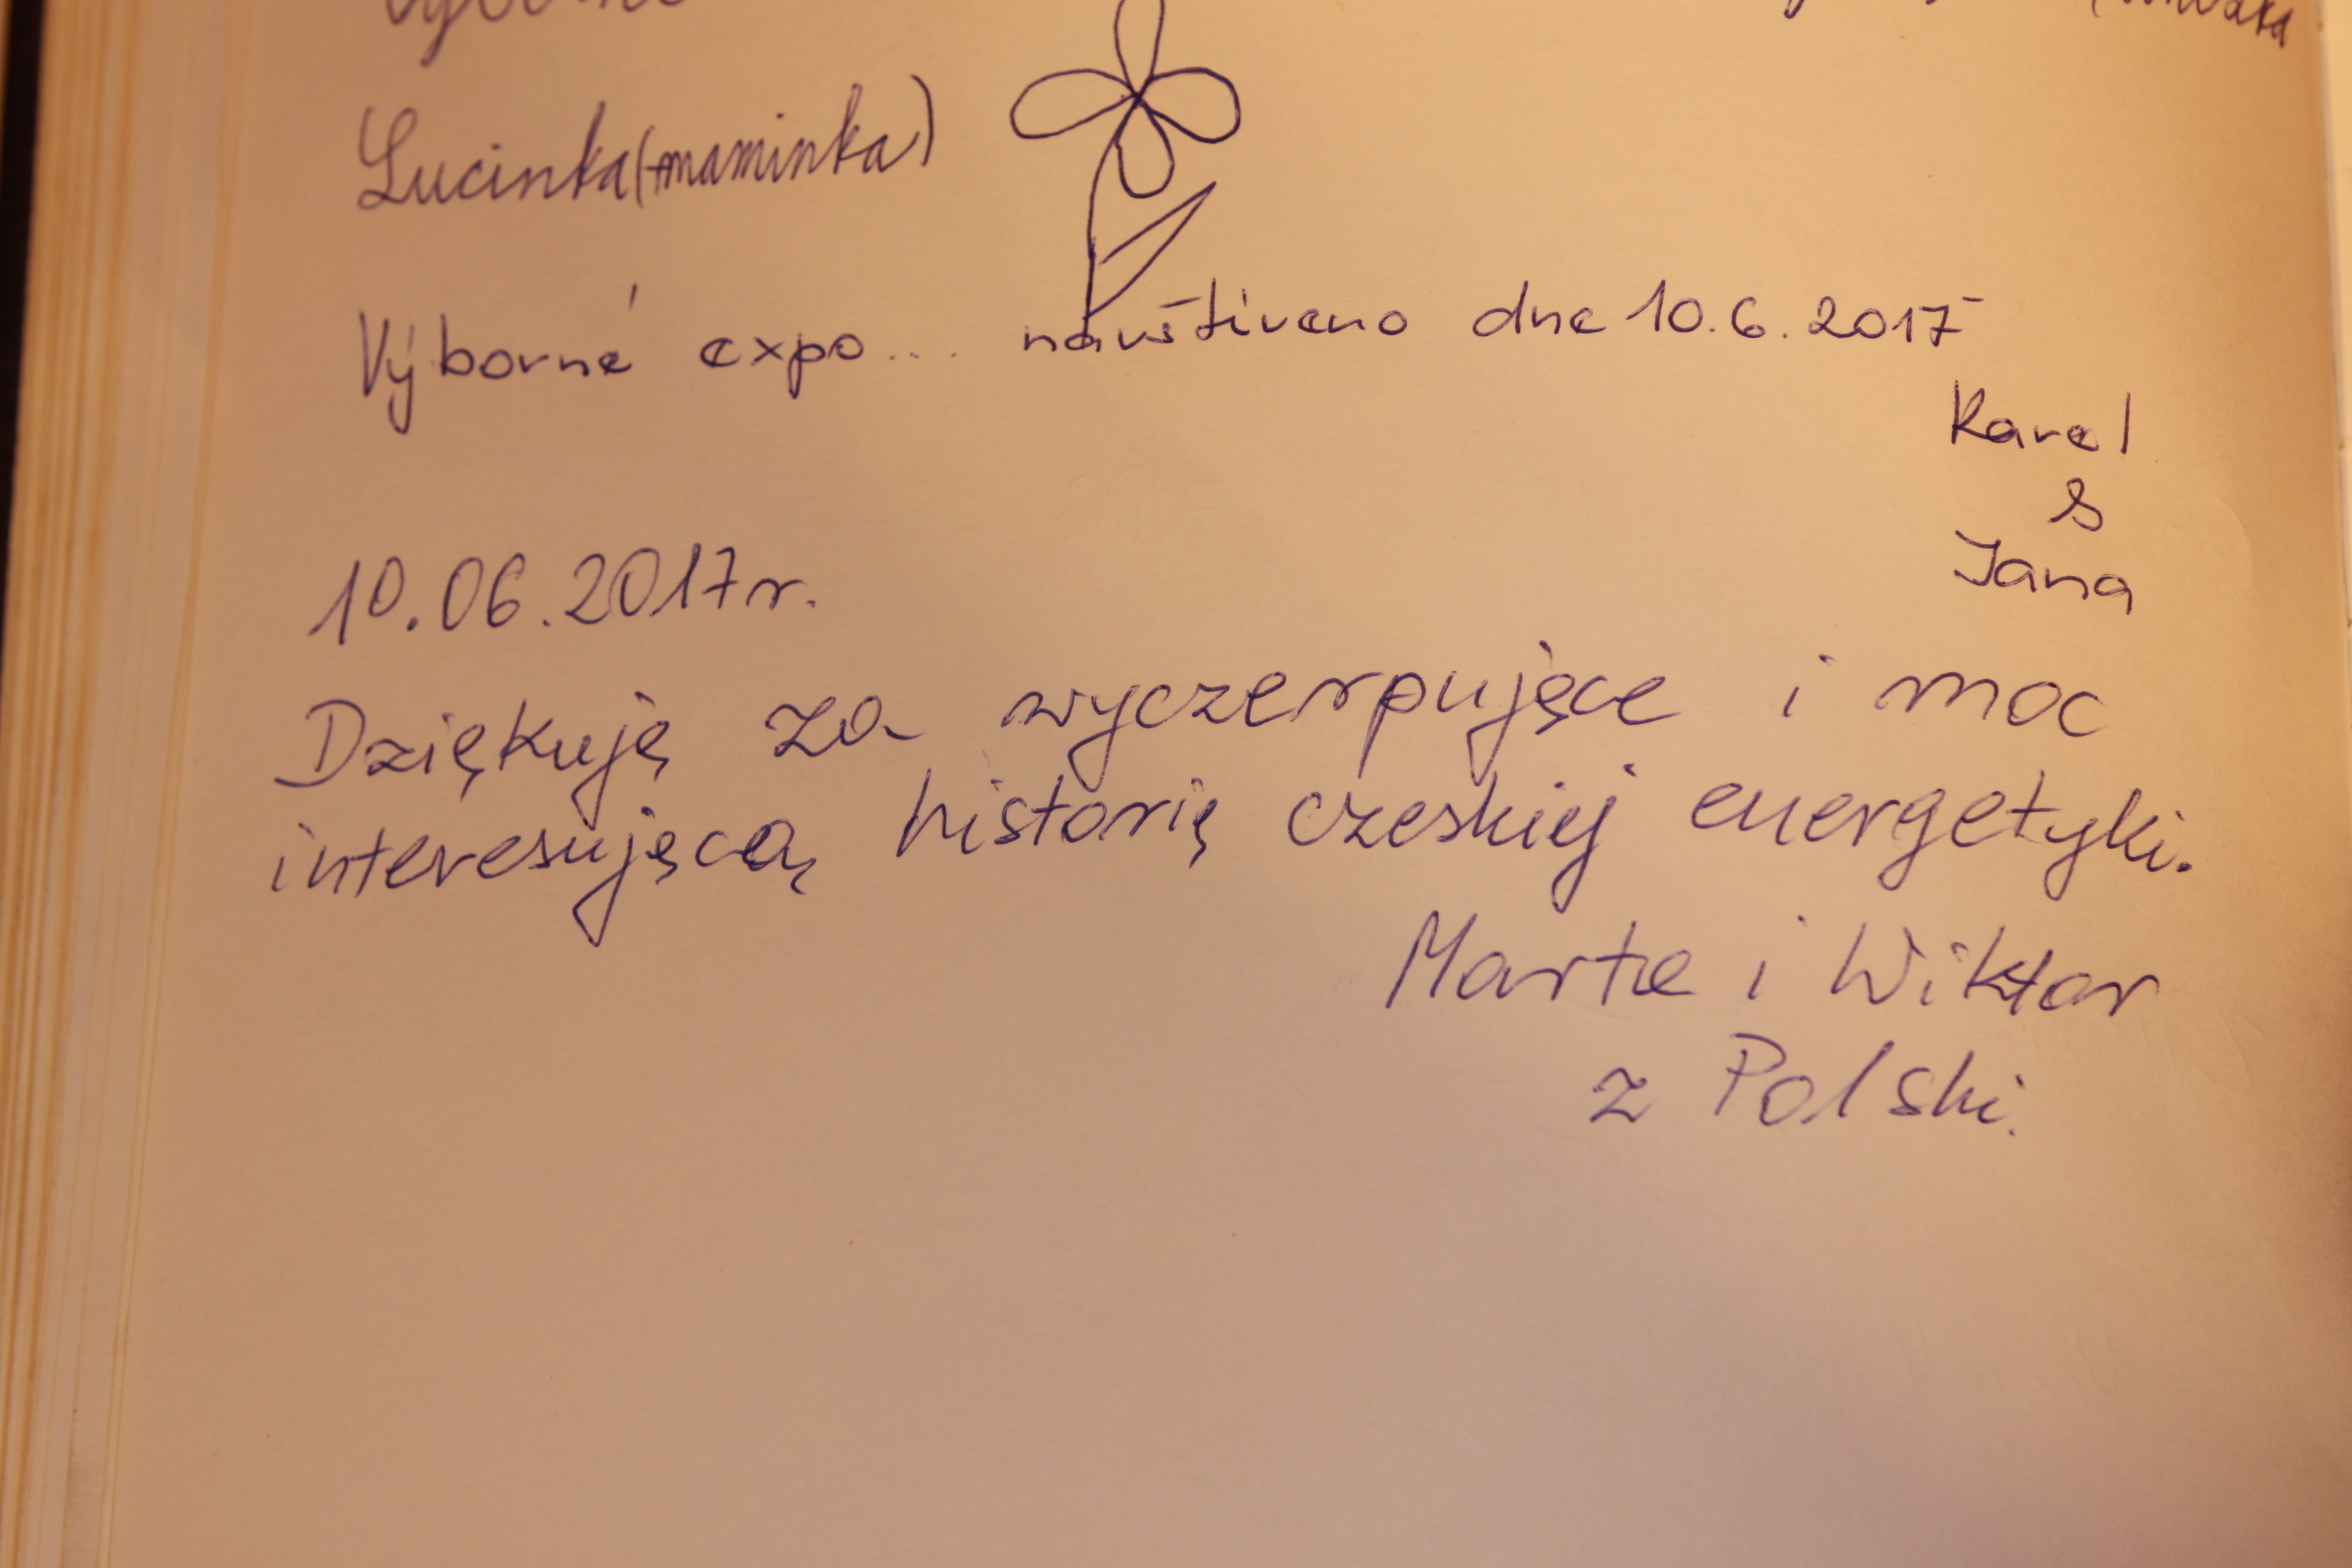 Lucinka(+maminka)
Výborné expo... navštíveno dne 10.6.2017
Karel
&
Jana
10.06.2017r.
Dziękuję za wyczerpujące i moc
interesującą historię czeskiej energetyki.
Marta i Wiktor
z Polski.